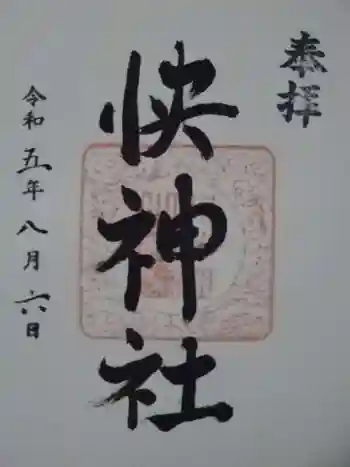 奉拝
快神社
令和五年八月六日